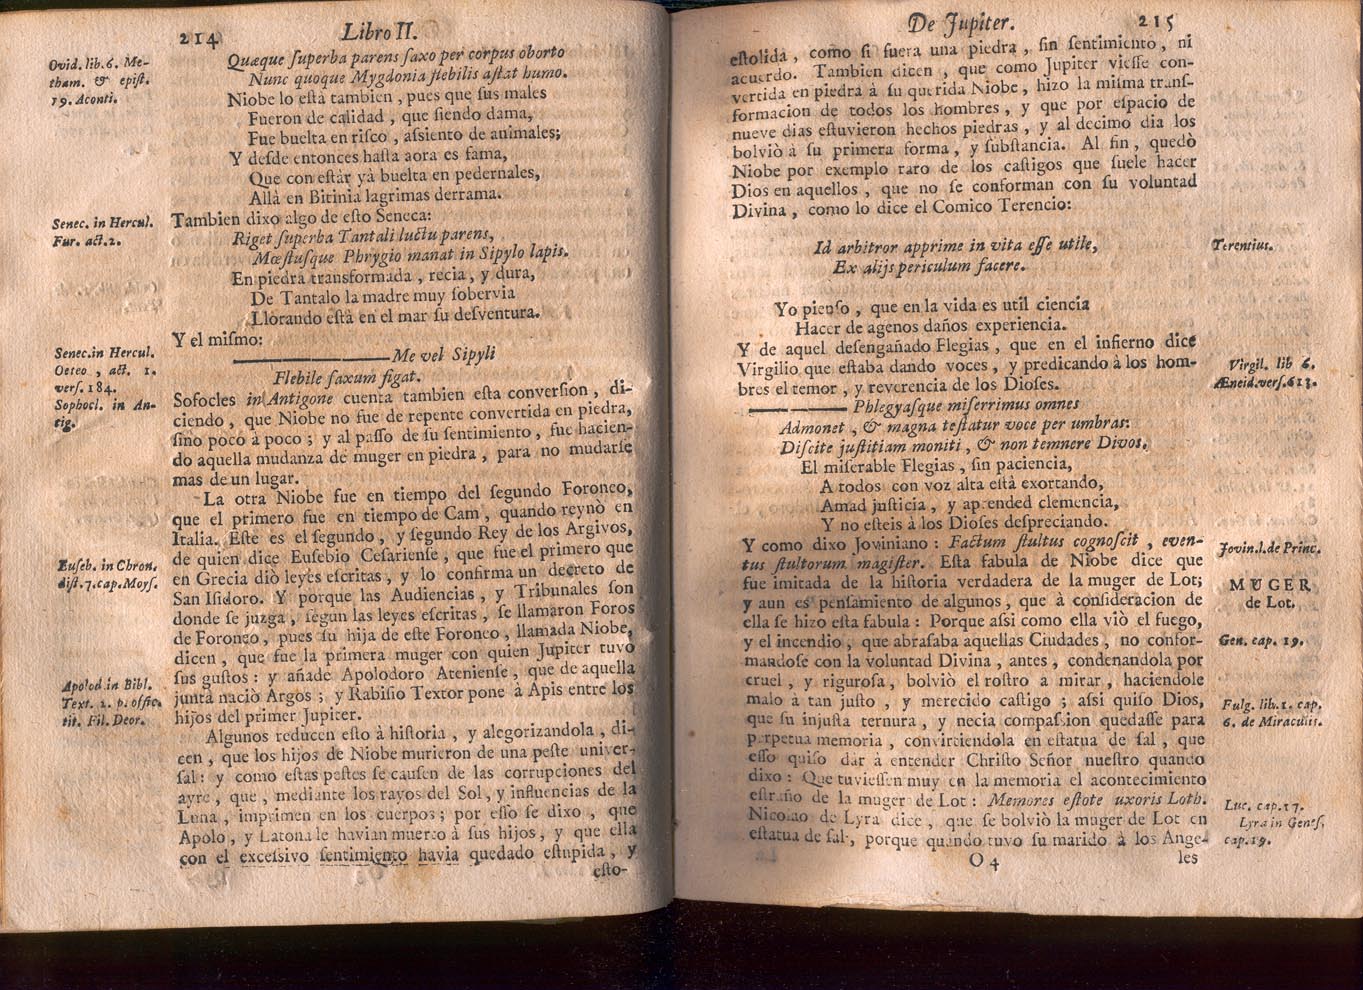 214 Libro II.
Ovid. lib. 6. Me-
tham. & epist.
19. Aconti.
Quæque ſuperba parens ſaxo per corpus oborto
Nunc quoque Mygdonia flebilis aſtat humo.
Niobe lo eſtà tambien, pues que ſus males
Fueron de calidad, que ſiendo dama,
Fue buelta en riſco, aſsiento de animales;
Y deſde entonces haſta aora es fama,
Que con eſtàr yà buelta en pedernales,
Allà en Bitinia lagrimas derrama.
Senec. in Hercul.
Fur. act. 2.
Tambien dixo algo de eſto Seneca:
Riget ſuperba Tantali luctu parens,
Mœſtuſque Phrygio manat in Sipylo lapis.
En piedra transformada, recia, y dura,
De Tantalo la madre muy ſobervia
Llorando eſtà en el mar ſu deſventura.
Y el miſmo:
Senec. in Hercul.
Oeteo, act. 1.
verſ. 184.
Sophocl. in An-
tig.
———— Me vel Sipyli
Flebile ſaxum figat.
Sofocles in Antigone cuenta tambien eſta converſion, di-
ciendo, que Niobe no fue de repente convertida en piedra,
ſino poco à poco; y al paſſo de ſu ſentimiento, fue hacien-
do aquella mudanza de muger en piedra, para no mudarſe
mas de un lugar.
La otra Niobe fue en tiempo del ſegundo Foroneo,
que el primero fue en tiempo de Cam, quando reynò en
Italia. Eſte es el ſegundo, y ſegundo Rey de los Argivos,
de quien dice Euſebio Ceſarienſe, que fue el primero que
en Grecia diò leyes eſcritas, y lo confirma un decreto de
San Iſidoro. Y porque las Audiencias, y Tribunales ſon
donde ſe juzga, ſegun las leyes eſcritas, ſe llamaron Foros
de Foroneo, pues ſu hija de eſte Foroneo, llamada Niobe,
dicen, que fue la primera muger con quien Jupiter tuvo
ſus guſtos: y añade Apolodoro Atenienſe, que de aquella
junta naciò Argos; y Rabiſio Textor pone à Apis entre los
hijos del primer Jupiter.
Euſeb. in Chron.
diſt. 7. cap. Moyſ.
Apolod. in Bibl.
Text. 2. p. offic.
tit. Fil. Deor.
Algunos reducen eſto à hiſtoria, y alegorizandola, di-
cen, que los hijos de Niobe murieron de una peſte univer-
ſal: y como eſtas peſtes ſe cauſen de las corrupciones del
ayre, que, mediante los rayos del Sol, y influencias de la
Luna, imprimen en los cuerpos; por eſſo ſe dixo, que
Apolo, y Latona le havian muerto à ſus hijos, y que ella
con el exceſsivo ſentimiento havia quedado eſtupida, y
eſto-
De Jupiter. 215
eſtolida, como ſi fuera una piedra, ſin ſentimiento, ni
acuerdo. Tambien dicen, que como Jupiter vieſſe con-
vertida en piedra à ſu querida Niobe, hizo la miſma tranſ-
formacion de todos los hombres, y que por eſpacio de
nueve dias eſtuvieron hechos piedras, y al decimo dia los
bolviò à ſu primera forma, y ſubſtancia. Al fin, quedò
Niobe por exemplo raro de los caſtigos que ſuele hacer
Dios en aquellos, que no ſe conforman con ſu voluntad
Divina, como lo dice el Comico Terencio:
Id arbitror apprime in vita eſſe utile,
Ex alijs periculum facere.
Terentius.
Yo pienſo, que en la vida es util ciencia
Hacer de agenos daños experiencia.
Y de aquel deſengañado Flegias, que en el infierno dice
Virgilio que eſtaba dando voces, y predicando à los hom-
bres el temor, y reverencia de los Dioſes.
Virgil. lib 6.
Æneid. verſ. 613.
———— Phlegyaſque miſerrimus omnes
Admonet, & magna teſtatur voce per umbras:
Diſcite juſtitiam moniti, & non temnere Divos.
El miſerable Flegias, ſin paciencia,
A todos con voz alta eſtà exortando,
Amad juſticia, y aprended clemencia,
Y no eſteis à los Dioſes deſpreciando.
Y como dixo Joviniano: Factum ſtultus cognoſcit, even-
tus ſtultorum magiſter. Eſta fabula de Niobe dice que
fue imitada de la hiſtoria verdadera de la muger de Lot;
y aun es penſamiento de algunos, que à conſideracion de
ella ſe hizo eſta fabula: Porque aſsi como ella viò el fuego,
y el incendio, que abraſaba aquellas Ciudades, no confor-
mandoſe con la voluntad Divina, antes, condenandola por
cruel, y riguroſa, bolviò el roſtro a mirar, haciendole
malo à tan juſto, y merecido caſtigo; aſsi quiſo Dios,
que ſu injuſta ternura, y necia compaſsion quedaſſe para
perpetua memoria, convirtiendola en eſtatua de ſal, que
eſſo quiſo dar à entender Chriſto Señor nueſtro quando
dixo: Que tuvieſſen muy en la memoria el acontecimiento
eſtraño de la muger de Lot: Memores eſtote uxoris Loth.
Nicolao de Lyra dice, que ſe bolviò la muger de Lot en
eſtatua de ſal, porque quando tuvo ſu marido à los Ange-
Jovin. l. de Princ.
MUGER
de Lot.
Gen. cap. 19.
Fulg. lib. 1. cap.
6. de Miraculis.
Luc. cap. 17.
Lyra in Geneſ.
cap. 19.
O 4 les